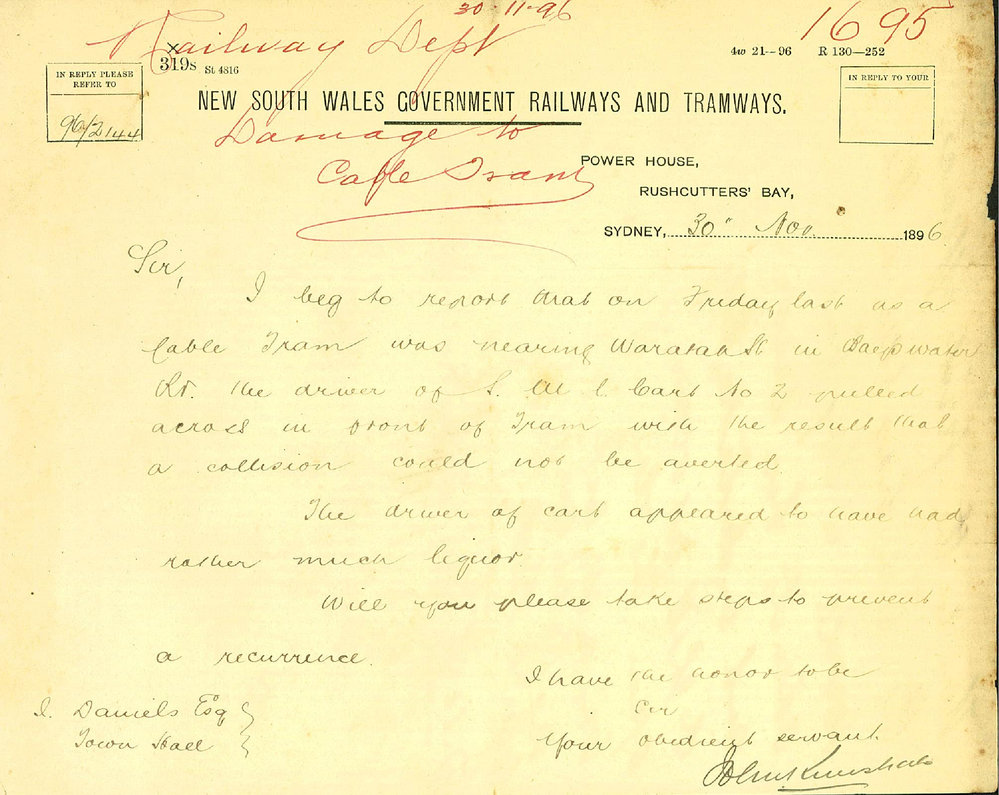 30-11-96
Railway Dept
1695
x
319s St 4816
4w 21--96 R 130—252
IN REPLY PLEASE
REFER TO
96/2144
IN REPLY TO YOUR
NEW SOUTH WALES GOVERNMENT RAILWAYS AND TRAMWAYS.
Damage to
Cable Tram
POWER HOUSE,
RUSHCUTTERS' BAY,
SYDNEY, 30" Nov 1896
Sir,
I beg to report that on Friday last as a
Cable Tram was nearing Waratah St in Bayswater
Rd. the driver of S. M C Cart No 2 pulled
across in front of Tram with the result that
a collision could not be averted.
The driver of cart appeared to have had
rather much liquor.
Will you please take steps to prevent
a recurrence.
I have the honor to be
Sir
Your obedient servant
I. Daniels Esq
Town Hall